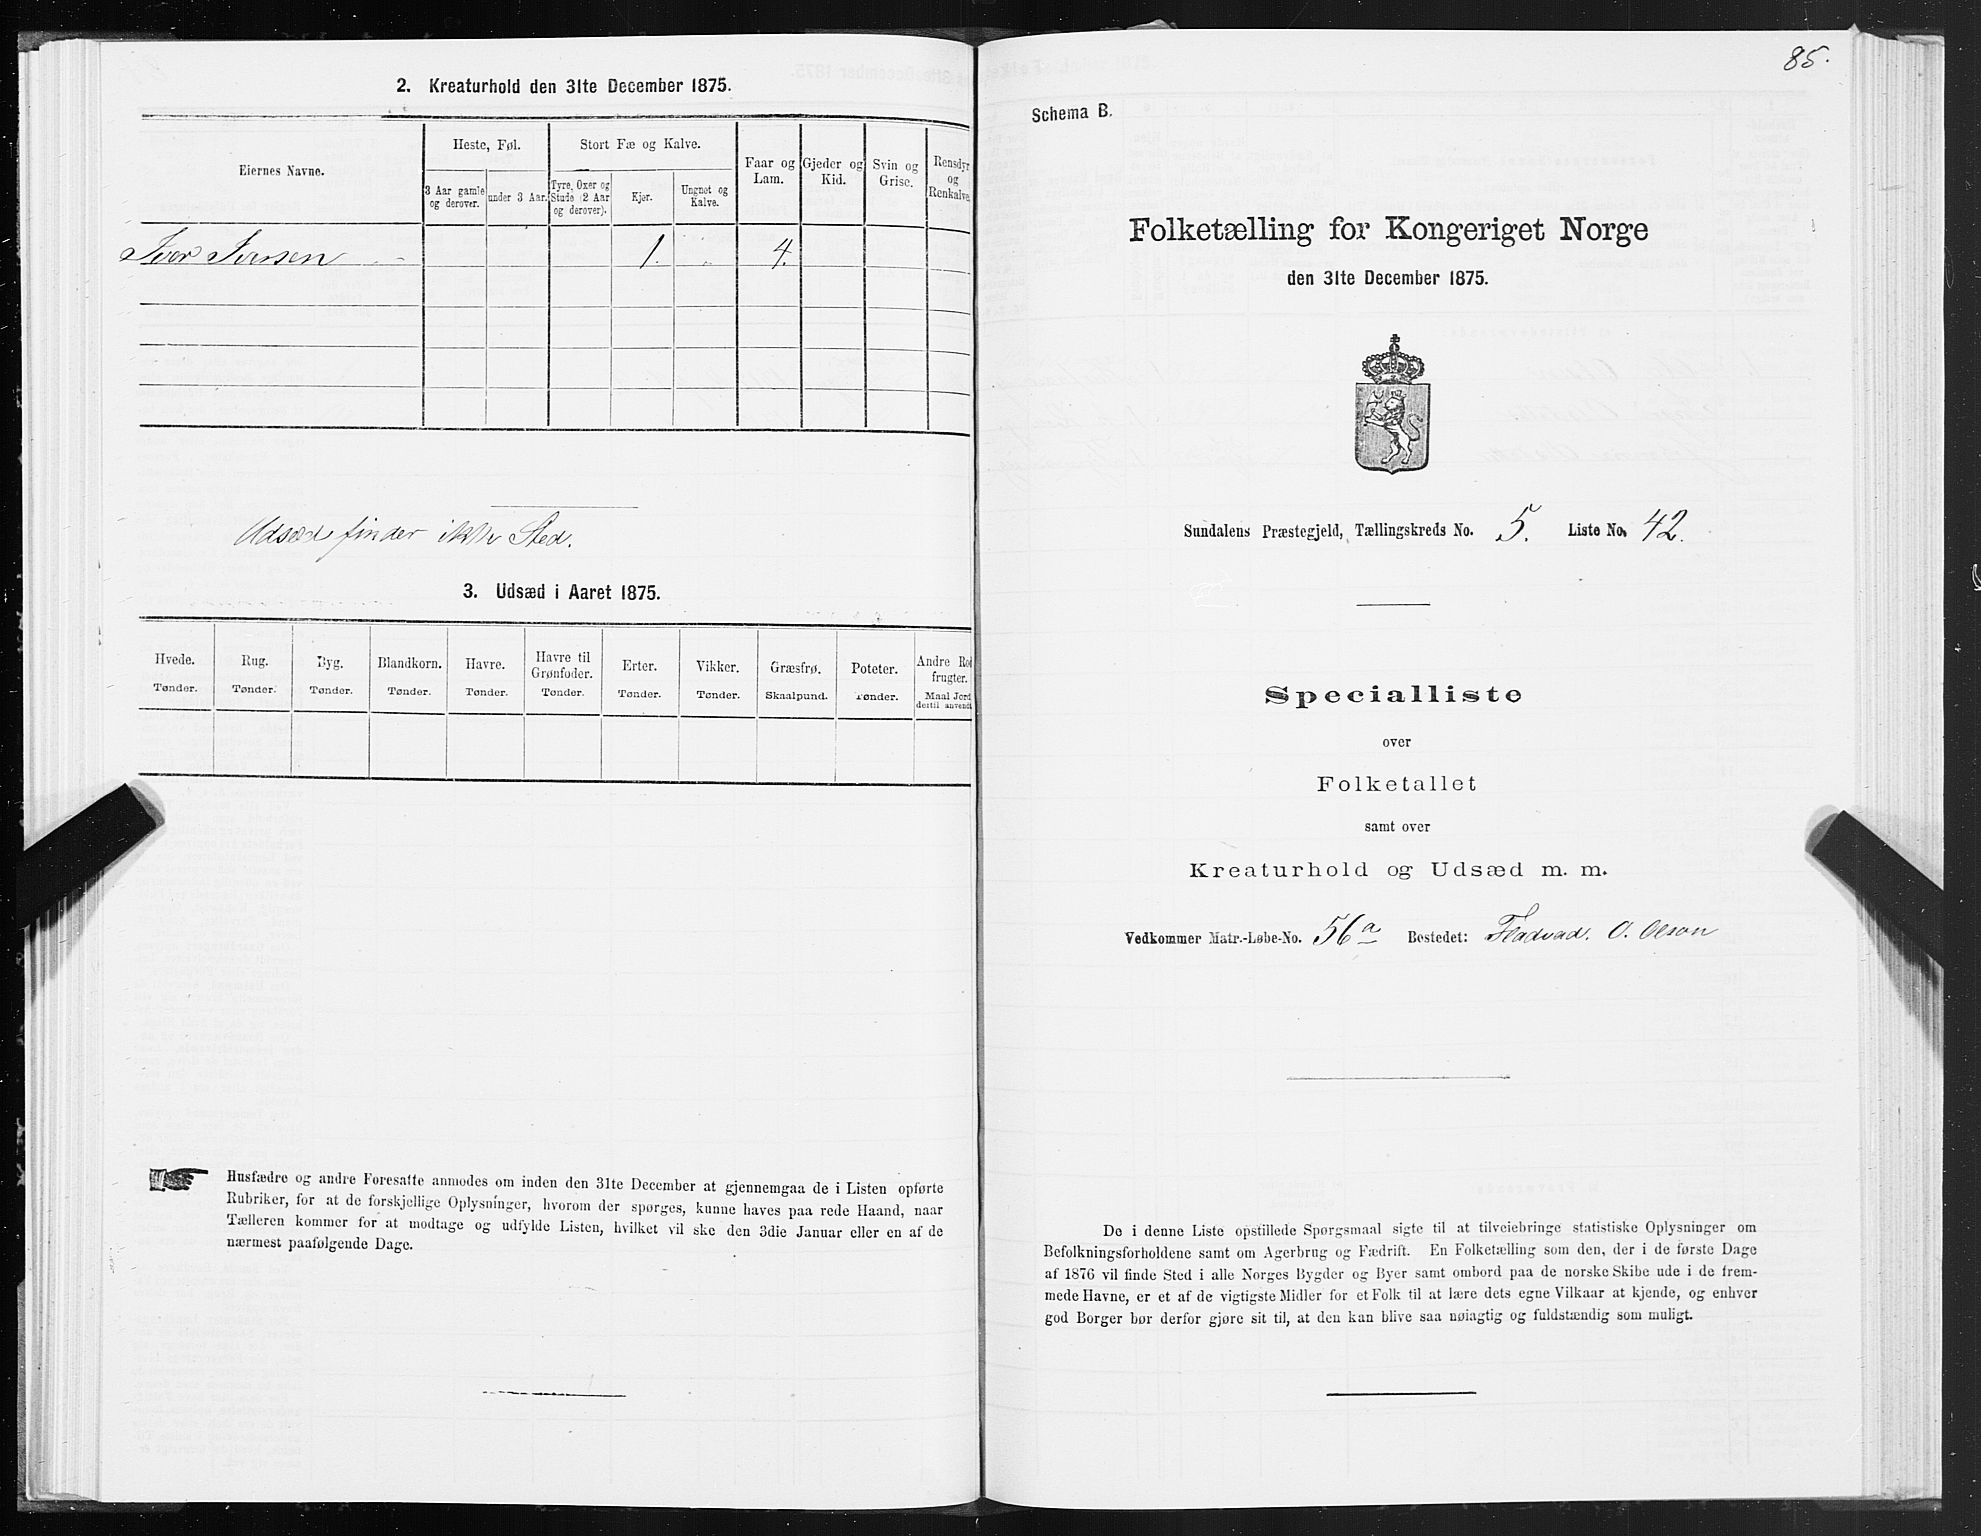 2. Kreaturhold den 31te December 1875.
Eiernes Navne.
Heste, Føl.
Stort Fæ og Kalve.
Faar og Lam.
Gjeder og Kid.
Svin og Grise.
Rensdyr og Renkalve.
3 Aar gamle og derover.
under 3 Aar.
Tyre, Oxer og Stude (2 Aar og derover).
Kjør.
Ungnøt og Kalve.
Iver Iversen 1. 4.
Udsæd finder ikke Sted.
3. Udsæd i Aaret 1875.
Hvede. Rug. Byg. Blandkorn. Havre. Havre til Grønfoder. Erter. Vikker. Græsfrø. Poteter. Andre Rodfrugter.
Tønder. Tønder. Tønder. Tønder. Tønder. Tønder. Tønder. Tønder. Skaalpund. Tønder. Maal Jord dertil anvendt
Husfædre og andre Foresatte anmodes om inden den 31te December at gjennemgaa de i Listen opførte
Rubriker, for at de forskjellige Oplysninger, hvorom der spørges, kunne haves paa rede Haand, naar
Tælleren kommer for at modtage og udfylde Listen, hvilket vil ske den 3die Januar eller en af de
nærmest paafølgende Dage.
85.
Schema B.
Folketælling for Kongeriget Norge
den 31te December 1875.
Sundalens Præstegjeld, Tællingskreds No. 5. Liste No. 42.
Specialliste
over
Folketallet
samt over
Kreaturhold og Udsæd m. m.
Vedkommer Matr.-Løbe-No. 56a Bostedet: Fladvad. O. Olson
De i denne Liste opstillede Spørgsmaal sigte til at tilveiebringe statistiske Oplysninger om
Befolkningsforholdene samt om Agerbrug og Fædrift. En Folketælling som den, der i de første Dage
af 1876 vil finde Sted i alle Norges Bygder og Byer samt ombord paa de norske Skibe ude i de frem-
mede Havne, er et af de vigtigste Midler for et Folk til at lære dets egne Vilkaar at kjende, og enhver
god Borger bør derfor gjøre sit til, at den kan blive saa nøiagtig og fuldstændig som muligt.